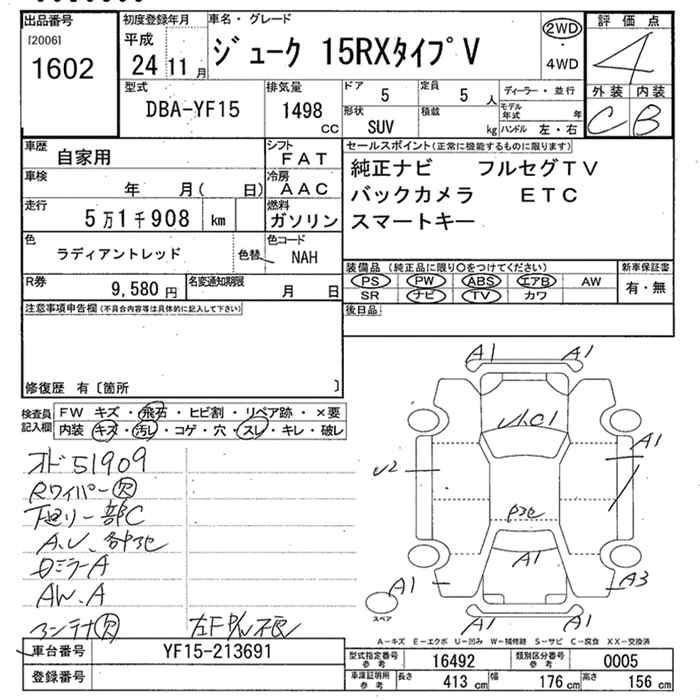 出品番号
[2006]
1602
初度登録年月
平成
24 11 月
車名・グレード
ジューク 15RXタイプV
2WD
・
4WD
評価点
4
外装 内装
C B
型式
DBA-YF15
排気量
1498
cc
ドア
5
定員
5 人
形状
SUV
積載
kg
ディーラー・並行
モデル年式 年
ハンドル 左・右
車歴
自家用
シフト
FAT
車検
年 月( 日)
冷房
AAC
走行
5万1千908 km
燃料
ガソリン
色
ラディアントレッド
色替
色コード
NAH
R券
9,580 円
名変通知期限
月 日
セールスポイント(正常に機能するものに限ります)
純正ナビ フルセグTV
バックカメラ ETC
スマートキー
装備品 (純正品に限り○をつけてください)
PS PW ABS エアB AW
SR ナビ TV カワ
新車保証書
有・無
後日品
注意事項申告欄(不具合内容等は具体的に記入して下さい)
修復歴 有〔箇所 〕
検査員記入欄
FW キズ・飛石・ヒビ割・リペア跡・×要
内装 キズ・汚レ・コゲ・穴・スレ・キレ・破レ
オド51909
Rワイパー欠
下廻リ一部C
A.U、各部凹
ロミラーA
AW.A
アンテナ欠
A1 A1
A1
U2
A1
A1 A3
A1 A1
スペア
A-キズ E-エクボ U-凹み W-補修跡 S-サビ C-腐食 XX-交換済
車台番号
YF15-213691
登録番号
型式指定番号
参考
16492
類別区分番号
参考
0005
車庫証明用
参考
長さ
413 cm
幅
176 cm
高さ
156 cm